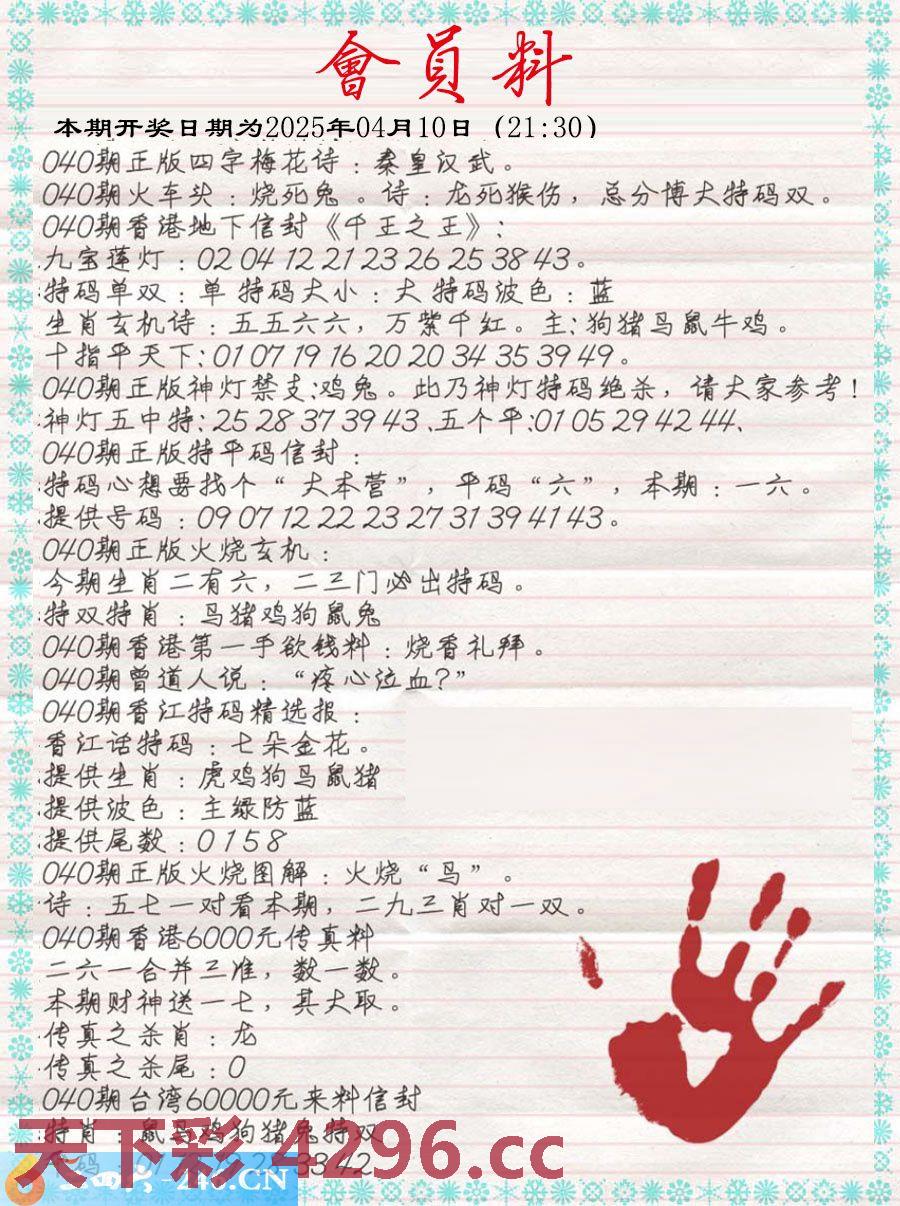 會員料
本期开奖日期为2025年04月10日（21:30）
040期正版四字梅花诗：秦皇汉武。
040期火车头：烧死兔。诗：龙死猴伤，总分博大特码双。
040期香港地下信封《千王之王》：
九宝莲灯：02 04 12 21 23 26 25 38 43。
特码单双：单 特码大小：大 特码波色：蓝
生肖玄机诗：五五六六，万紫千红。主：狗猪马鼠牛鸡。
十指平天下：01 07 19 16 20 20 34 35 39 49。
040期正版神灯禁支：鸡兔。此乃神灯特码绝杀，请大家参考！
神灯五中特：25 28 37 39 43、五个平：01 05 29 42 44、
040期正版特平码信封：
特码心想要找个“大本营”，平码“六”，本期：一六。
提供号码：09 07 12 22 23 27 31 39 41 43。
040期正版火烧玄机：
今期生肖二有六，二三门必出特码。
特双特肖：马猪鸡狗鼠兔
040期香港第一手欲钱料：烧香礼拜。
040期曾道人说：“疼心泣血？”
040期香江特码精选报：
香江话特码：七朵金花。
提供生肖：虎鸡狗马鼠猪
提供波色：主绿防蓝
提供尾数：0 1 5 8
040期正版火烧图解：火烧“马”。
诗：五七一对看本期，二九三肖对一双。
040期香港6000元传真料
二六一合并三准，数一数。
本期财神送一七，其大取。
传真之杀肖：龙
传真之杀尾：0
040期台湾60000元来料信封
特肖：鼠马鸡狗猪兔特双
天下彩 4296.cc
33 42
-246.CN